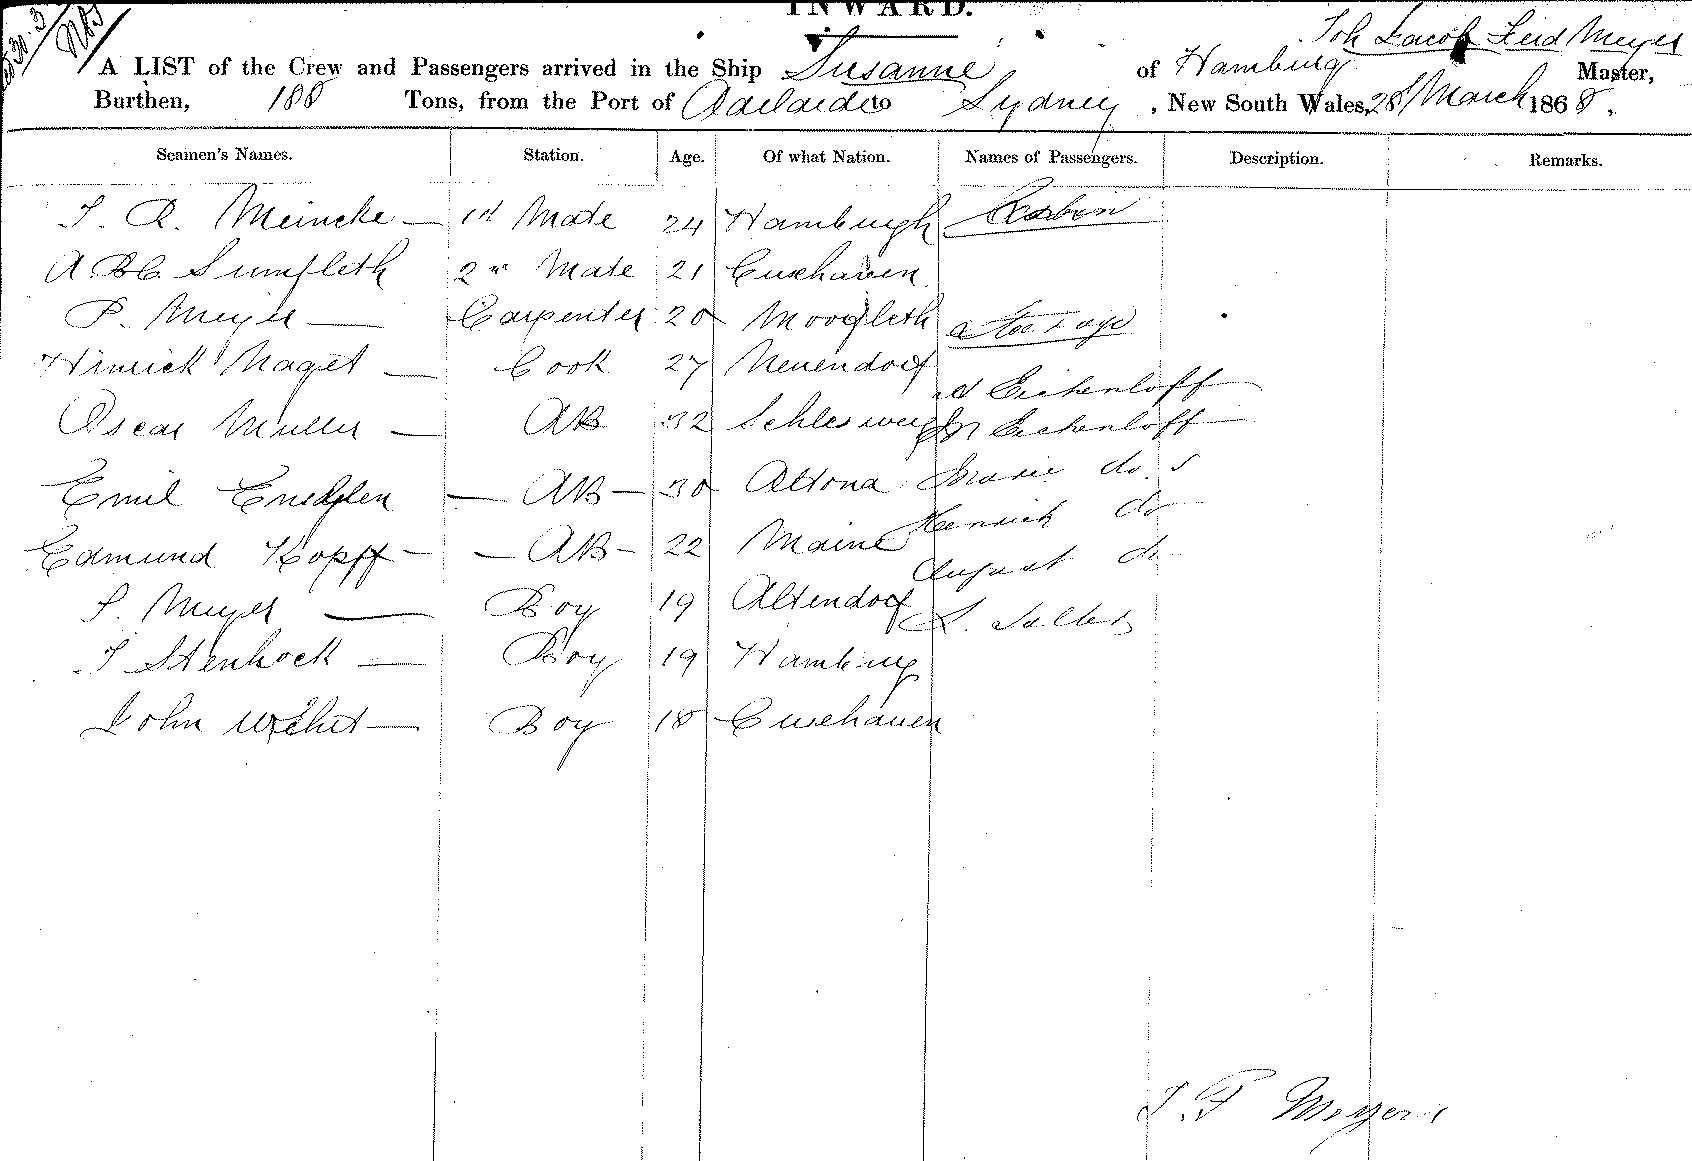 INWARD.
Joh Jacob Ferd Meyer
A LIST of the Crew and Passengers arrived in the Ship Susanne of Hamburg Master,
Burthen, 188 Tons, from the Port of Adelaide to Sydney, New South Wales, 28 March 1868.
Seamen's Names. Station. Age. Of what Nation. Names of Passengers. Description. Remarks.
Meincke — 1st Mate 24 Hamburgh Cabin
Sumfleth 2nd Mate 21 Cuxhaven
P. Meyer — Carpenter 20 Moorfleth Steerage
Hinrick Maget — Cook 27 Neuendorf
Eickenloff
Oscar Muller — AB 32 Schleswig Eickenloff
Emil — AB — 30 Altona Marie do
Henrich do
Edmund Kopff — — AB — 22 Maine
August do
Meyer — Boy 19 Altendorf
Stenhock — Boy 19 Hamburg
John — Boy 18 Cuxhaven
J. F Meyer